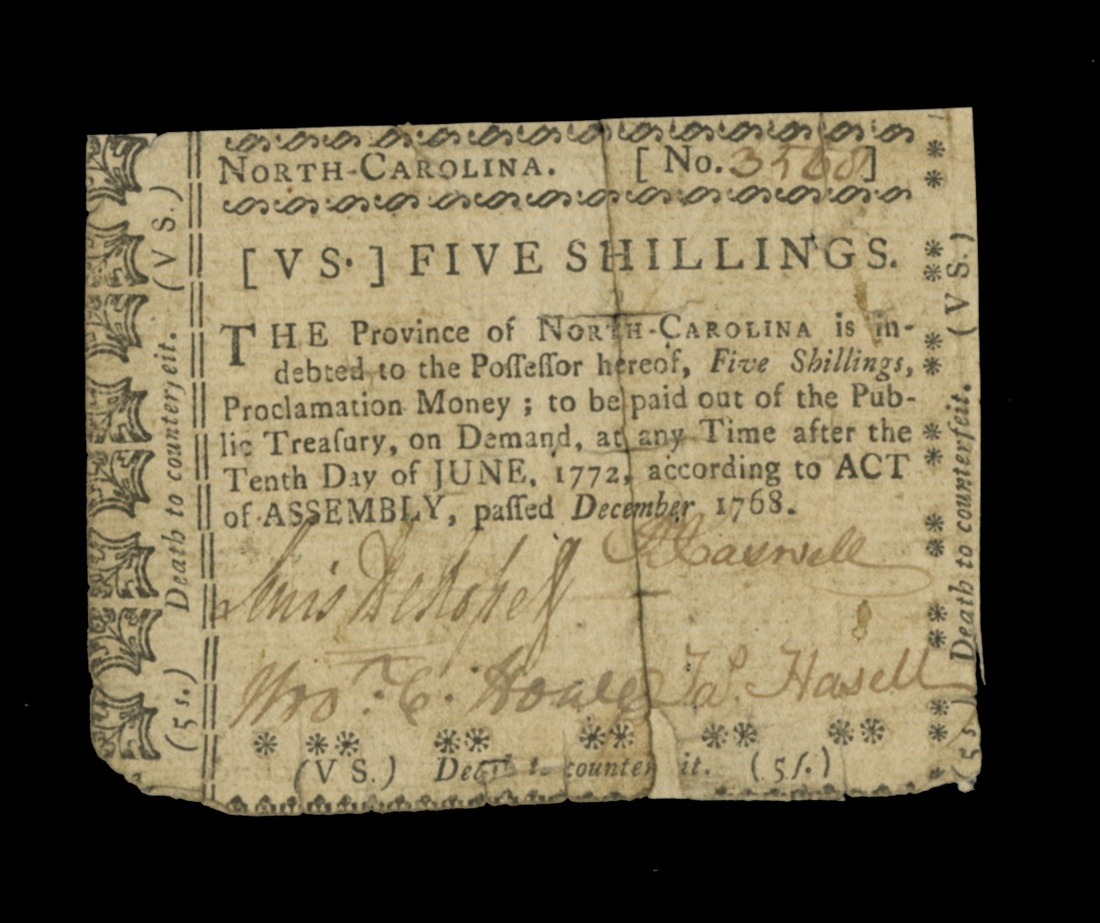 NORTH-CAROLINA. [ No. 3568 ]
[ V S. ] FIVE SHILLINGS.
THE Province of NORTH-CAROLINA is in-
debted to the Poſſeſſor hereof, Five Shillings,
Proclamation Money ; to be paid out of the Pub-
lic Treaſury, on Demand, at any Time after the
Tenth Day of JUNE, 1772, according to ACT
of ASSEMBLY, paſſed December 1768.
Lewis DeRosset
R Caswell
Ja.s Hasell
(V S.) Death to counterfeit. (5ſ.)
(5 s.) Death to counterfeit. (V S.)
(5 s) Death to counterfeit. (V S.)